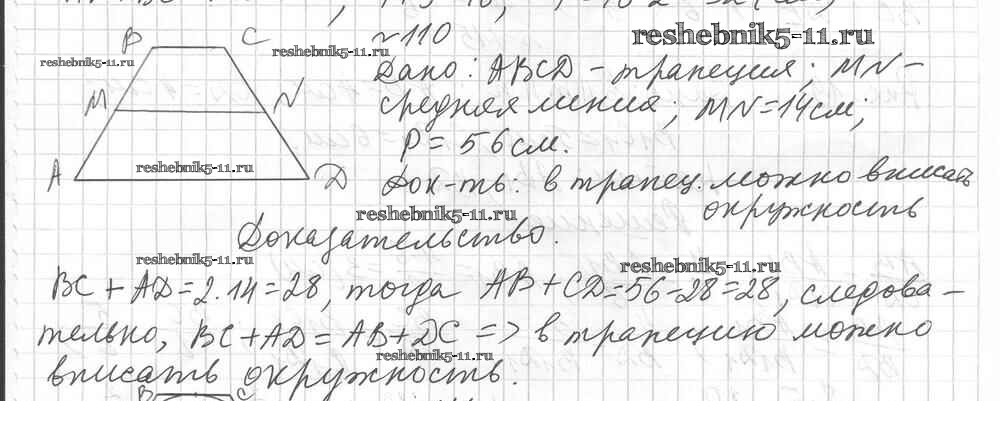 №110
reshebnik5-11.ru
B C
reshebnik5-11.ru
reshebnik5-11.ru
Дано: ABCD - трапеция; MN -
M N
средняя линия; MN=14см;
P=56см.
reshebnik5-11.ru
A D
Док-ть: в трапец. можно вписать
окружность
reshebnik5-11.ru
Доказательство.
reshebnik5-11.ru
reshebnik5-11.ru
BC+AD=2.14=28, тогда AB+CD=56-28=28, следова-
тельно, BC+AD=AB+DC => в трапецию можно
reshebnik5-11.ru
вписать окружность.
B C